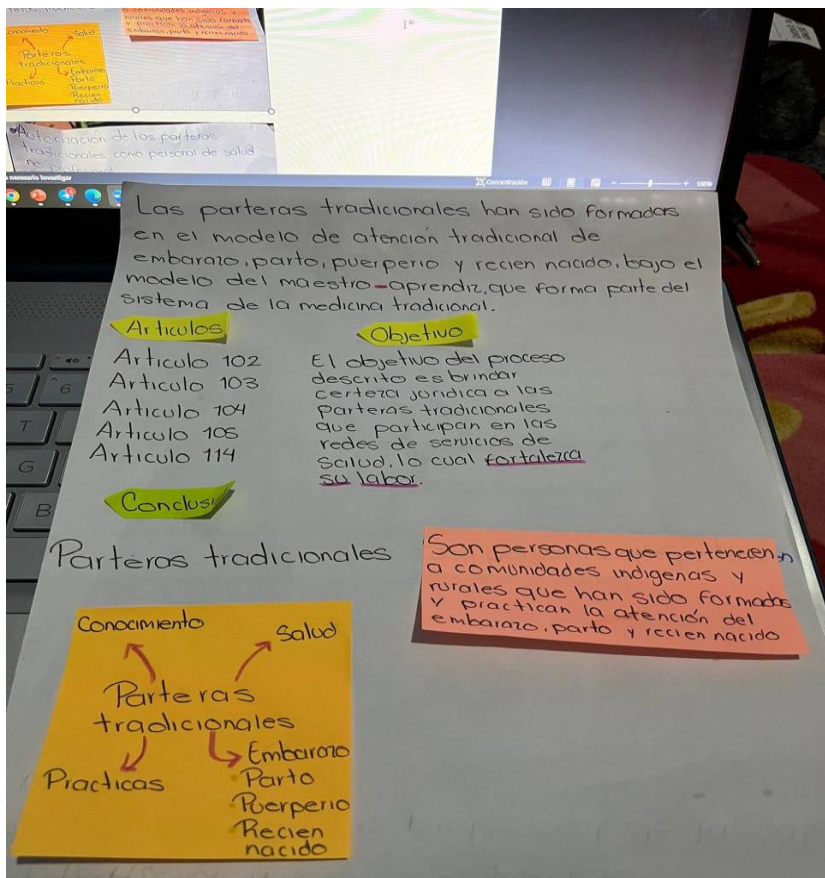 conocimiento
Salud
Parteras
tradicionales
Practicas
Embarazo
Parto
Puerperio
Recien
nacido
a comunidades indigenas y
rurales que han sido formadas
y practican la atención del
embarazo, parto y recien nacido
Autorización de las parteras
tradicionales como personal de salud
no
necesario Investigar
Concentración
100%
Las parteras tradicionales han sido formadas
en el modelo de atención tradicional de
embarazo, parto, puerperio y recien nacido, bajo el
modelo del maestro-aprendiz, que forma parte del
sistema de la medicina tradicional.
Articulos
Articulo 102
Articulo 103
Articulo 104
Articulo 105
Articulo 114
Objetivo
El objetivo del proceso
descrito es brindar
certeza jurídica a las
parteras tradicionales
que participan en las
redes de servicios de
salud, lo cual fortalezca
su labor.
Conclusi
Parteras tradicionales
Son personas que pertenecen
a comunidades indigenas y
rurales que han sido formadas
y practican la atención del
embarazo, parto y recien nacido
Conocimiento
Salud
Parteras
tradicionales
Practicas
Embarazo
Parto
Puerperio
Recien
nacido
6
5
T
G
B